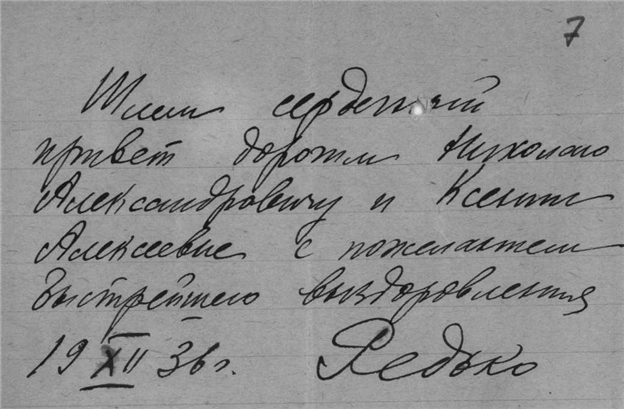 7
Шлем сердечный
привет дорогим Николаю
Александровичу и Ксении
Алексеевне с пожеланием
быстрейшего выздоровления
19 XII 36 г. Редько